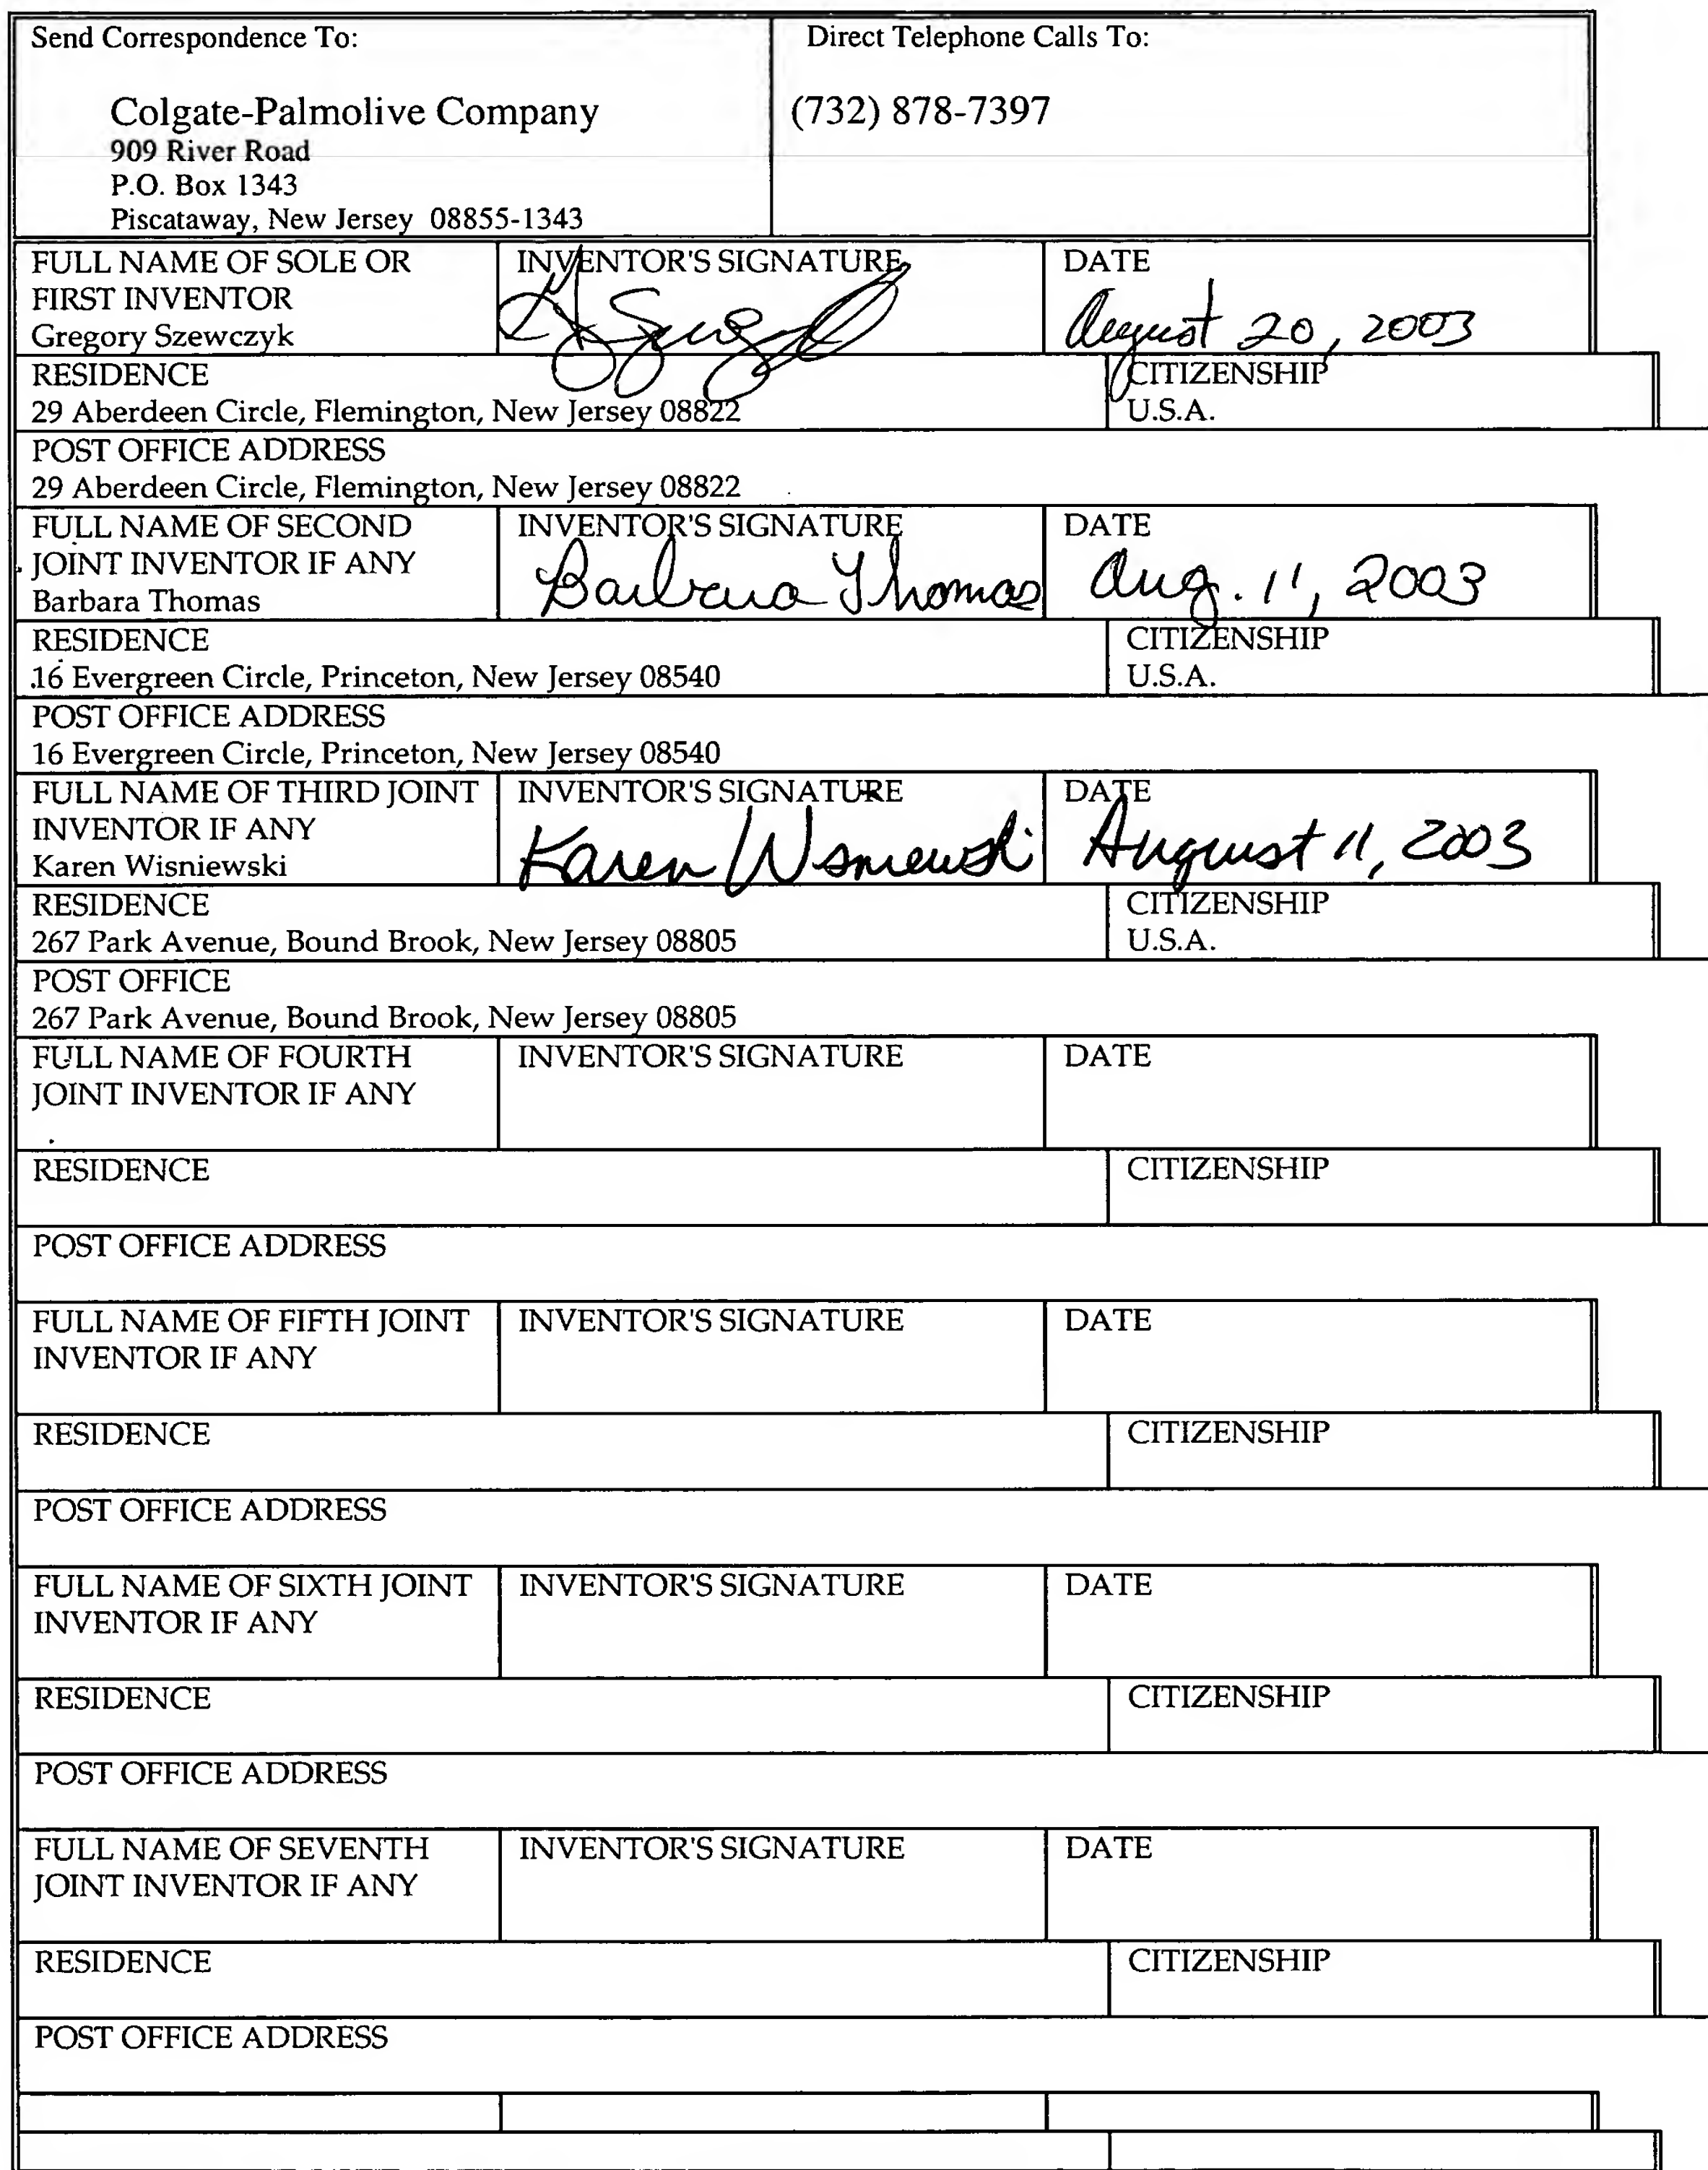 Send Correspondence To:
Direct Telephone Calls To:
Colgate-Palmolive Company
(732) 878-7397
909 River Road
P.O. Box 1343
Piscataway, New Jersey 08855-1343
FULL NAME OF SOLE OR
FIRST INVENTOR
Gregory Szewczyk
INVENTOR'S SIGNATURE
DATE
August 20, 2003
RESIDENCE
29 Aberdeen Circle, Flemington, New Jersey 08822
CITIZENSHIP
U.S.A.
POST OFFICE ADDRESS
29 Aberdeen Circle, Flemington, New Jersey 08822
FULL NAME OF SECOND
JOINT INVENTOR IF ANY
Barbara Thomas
INVENTOR'S SIGNATURE
Barbara Thomas
DATE
Aug. 11, 2003
RESIDENCE
16 Evergreen Circle, Princeton, New Jersey 08540
CITIZENSHIP
U.S.A.
POST OFFICE ADDRESS
16 Evergreen Circle, Princeton, New Jersey 08540
FULL NAME OF THIRD JOINT
INVENTOR IF ANY
Karen Wisniewski
INVENTOR'S SIGNATURE
Karen Wisniewski
DATE
August 11, 2003
RESIDENCE
267 Park Avenue, Bound Brook, New Jersey 08805
CITIZENSHIP
U.S.A.
POST OFFICE
267 Park Avenue, Bound Brook, New Jersey 08805
FULL NAME OF FOURTH
JOINT INVENTOR IF ANY
INVENTOR'S SIGNATURE
DATE
RESIDENCE
CITIZENSHIP
POST OFFICE ADDRESS
FULL NAME OF FIFTH JOINT
INVENTOR IF ANY
INVENTOR'S SIGNATURE
DATE
RESIDENCE
CITIZENSHIP
POST OFFICE ADDRESS
FULL NAME OF SIXTH JOINT
INVENTOR IF ANY
INVENTOR'S SIGNATURE
DATE
RESIDENCE
CITIZENSHIP
POST OFFICE ADDRESS
FULL NAME OF SEVENTH
JOINT INVENTOR IF ANY
INVENTOR'S SIGNATURE
DATE
RESIDENCE
CITIZENSHIP
POST OFFICE ADDRESS